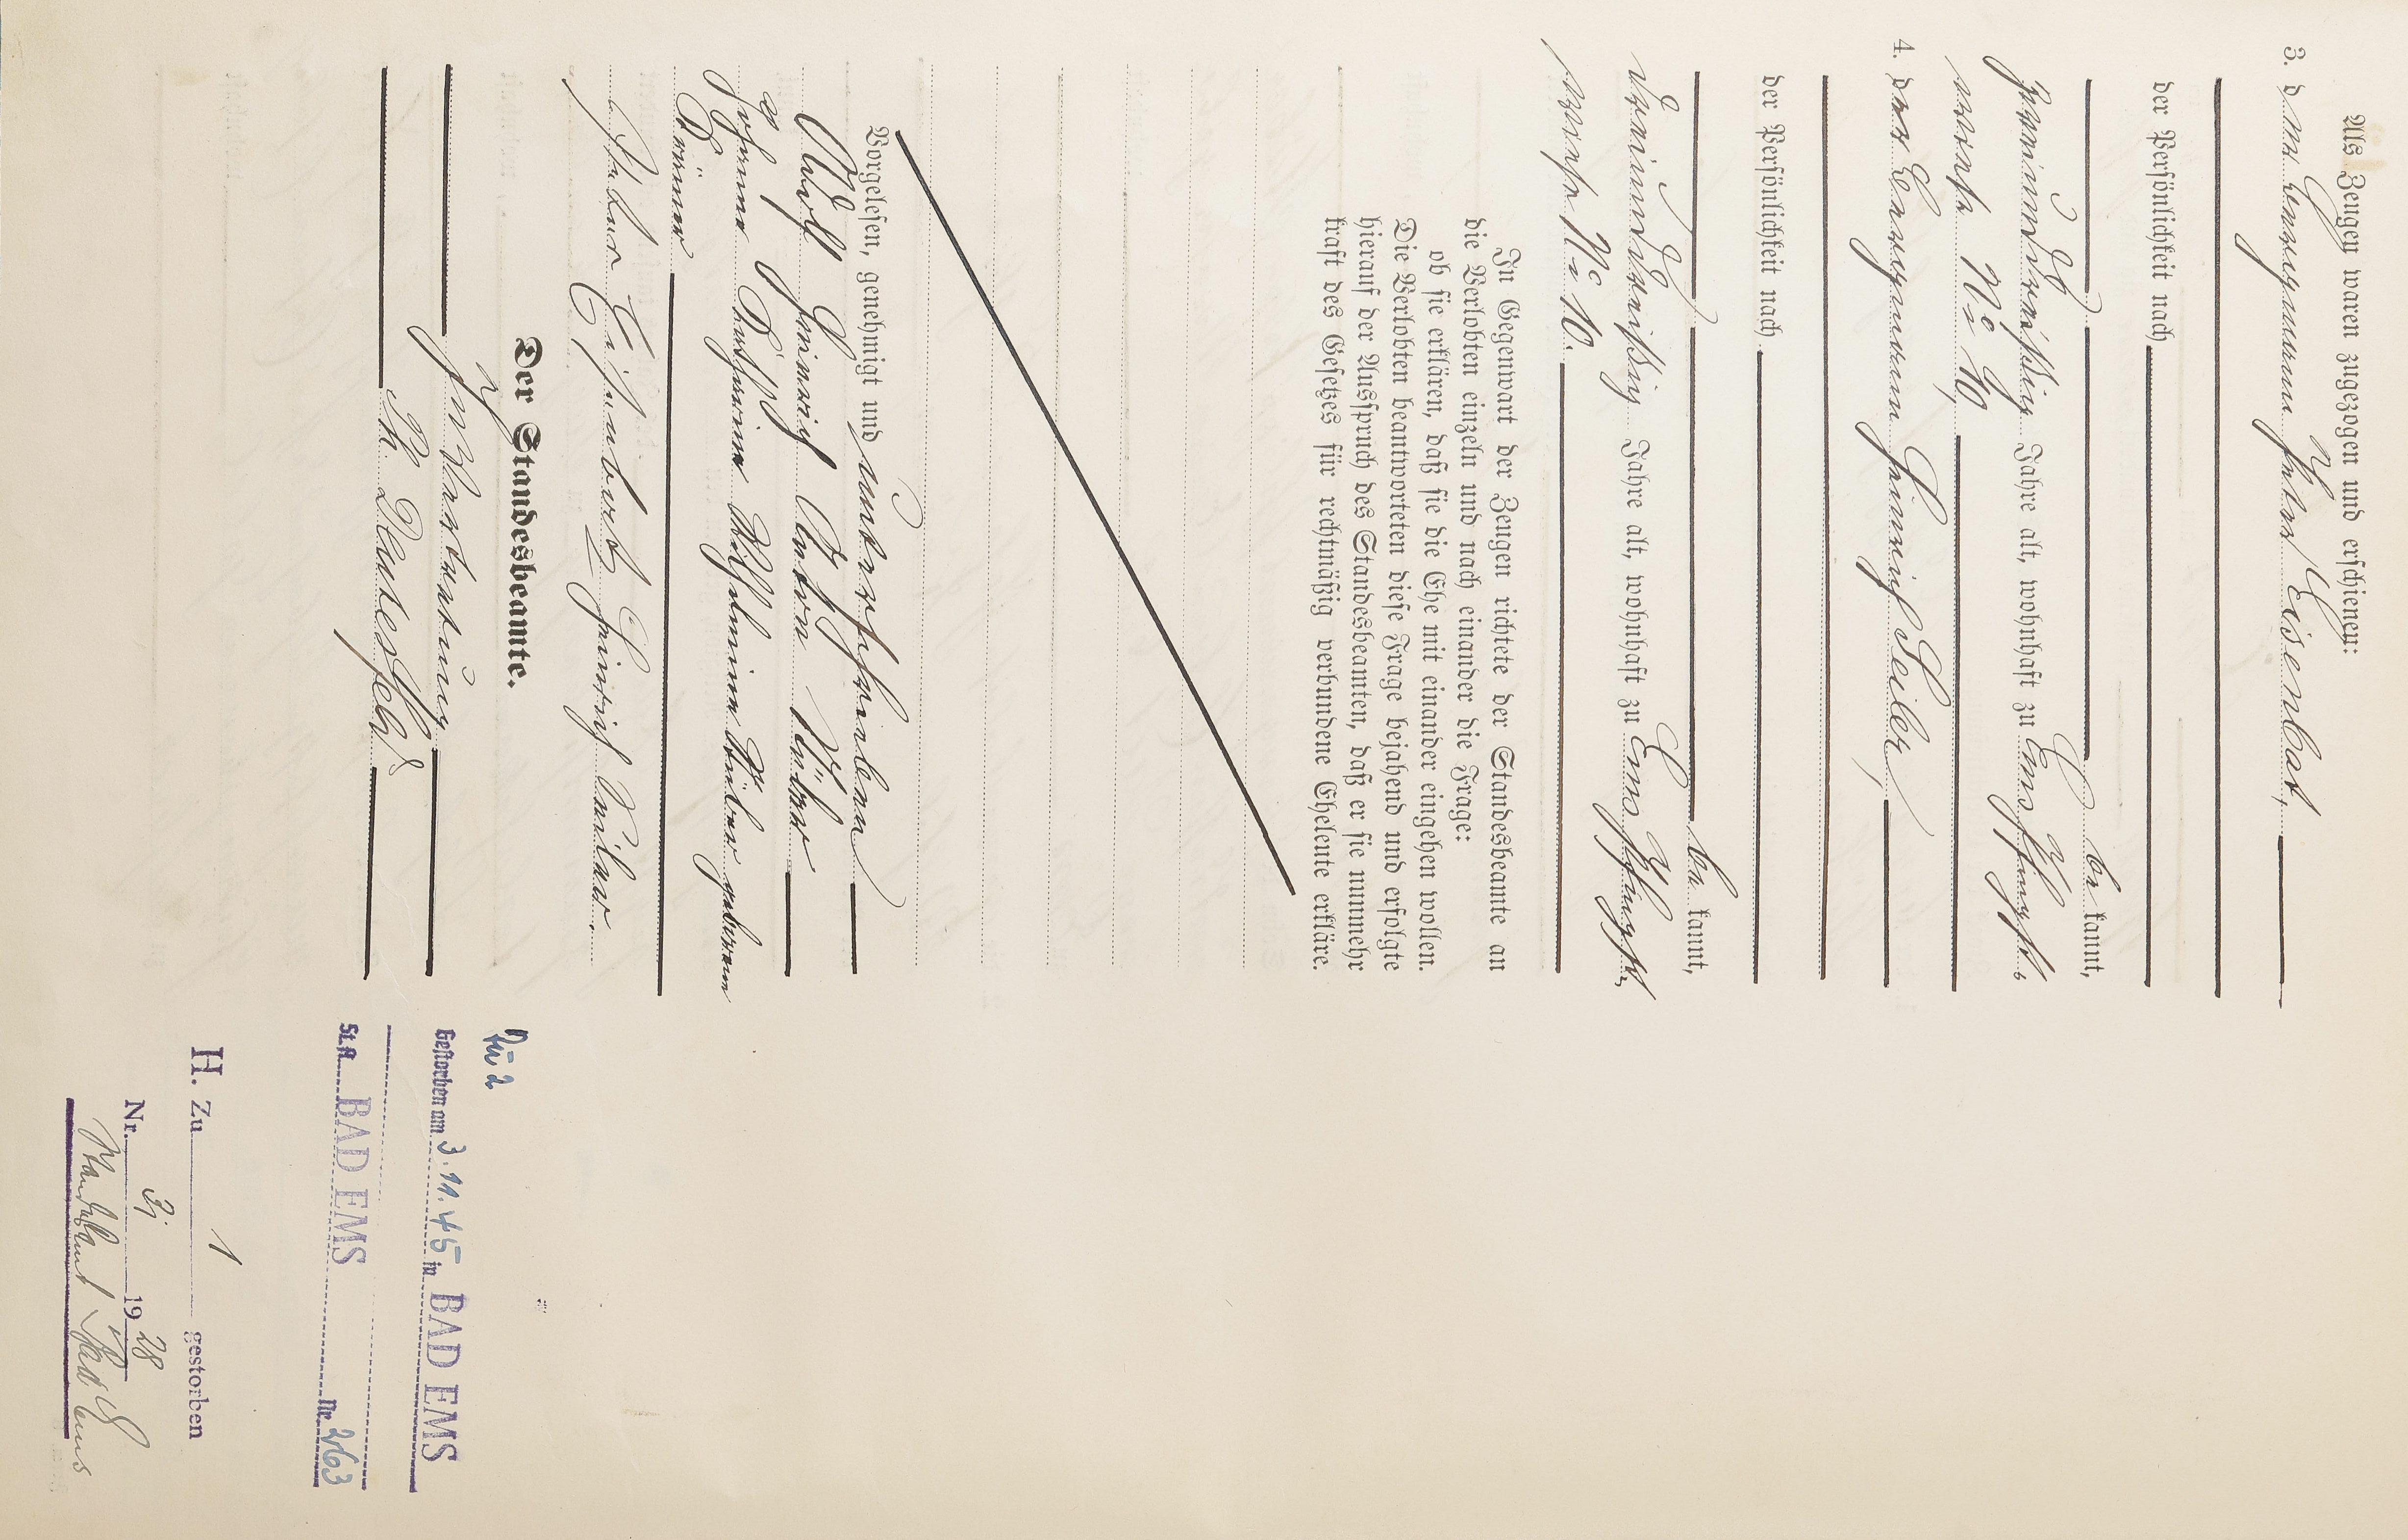 Als Zeugen waren zugezogen und erschienen:
3. der Bergmann Peter Eisenbart,
der Persönlichkeit nach
be kannt,
zweiunddreißig Jahre alt, wohnhaft zu Ems,
No 10
4. der Bergmann Heinrich Seiler,
der Persönlichkeit nach
be kannt,
dreiunddreißig Jahre alt, wohnhaft zu Ems
No 10.
In Gegenwart der Zeugen richtete der Standesbeamte an
die Verlobten einzeln und nach einander die Frage:
ob sie erklären, daß sie die Ehe mit einander eingehen wollen.
Die Verlobten beantworteten diese Frage bejahend und erfolgte
hierauf der Ausspruch des Standesbeamten, daß er sie nunmehr
kraft des Gesetzes für rechtmäßig verbundene Eheleute erkläre.
Vorgelesen, genehmigt und unterschrieben
Adolf Heinrich Anton
Johanna Katharina Wilhelmina geborene
Peter Eisenbarth Heinrich Seiler.
Der Standesbeamte.
In Vertretung
Zu 2.
Gestorben am 3.11.45 in BAD EMS
St.A. BAD EMS Nr. 263
H. Zu 1 gestorben
Nr. 31 1928
Standesamt Bad Ems